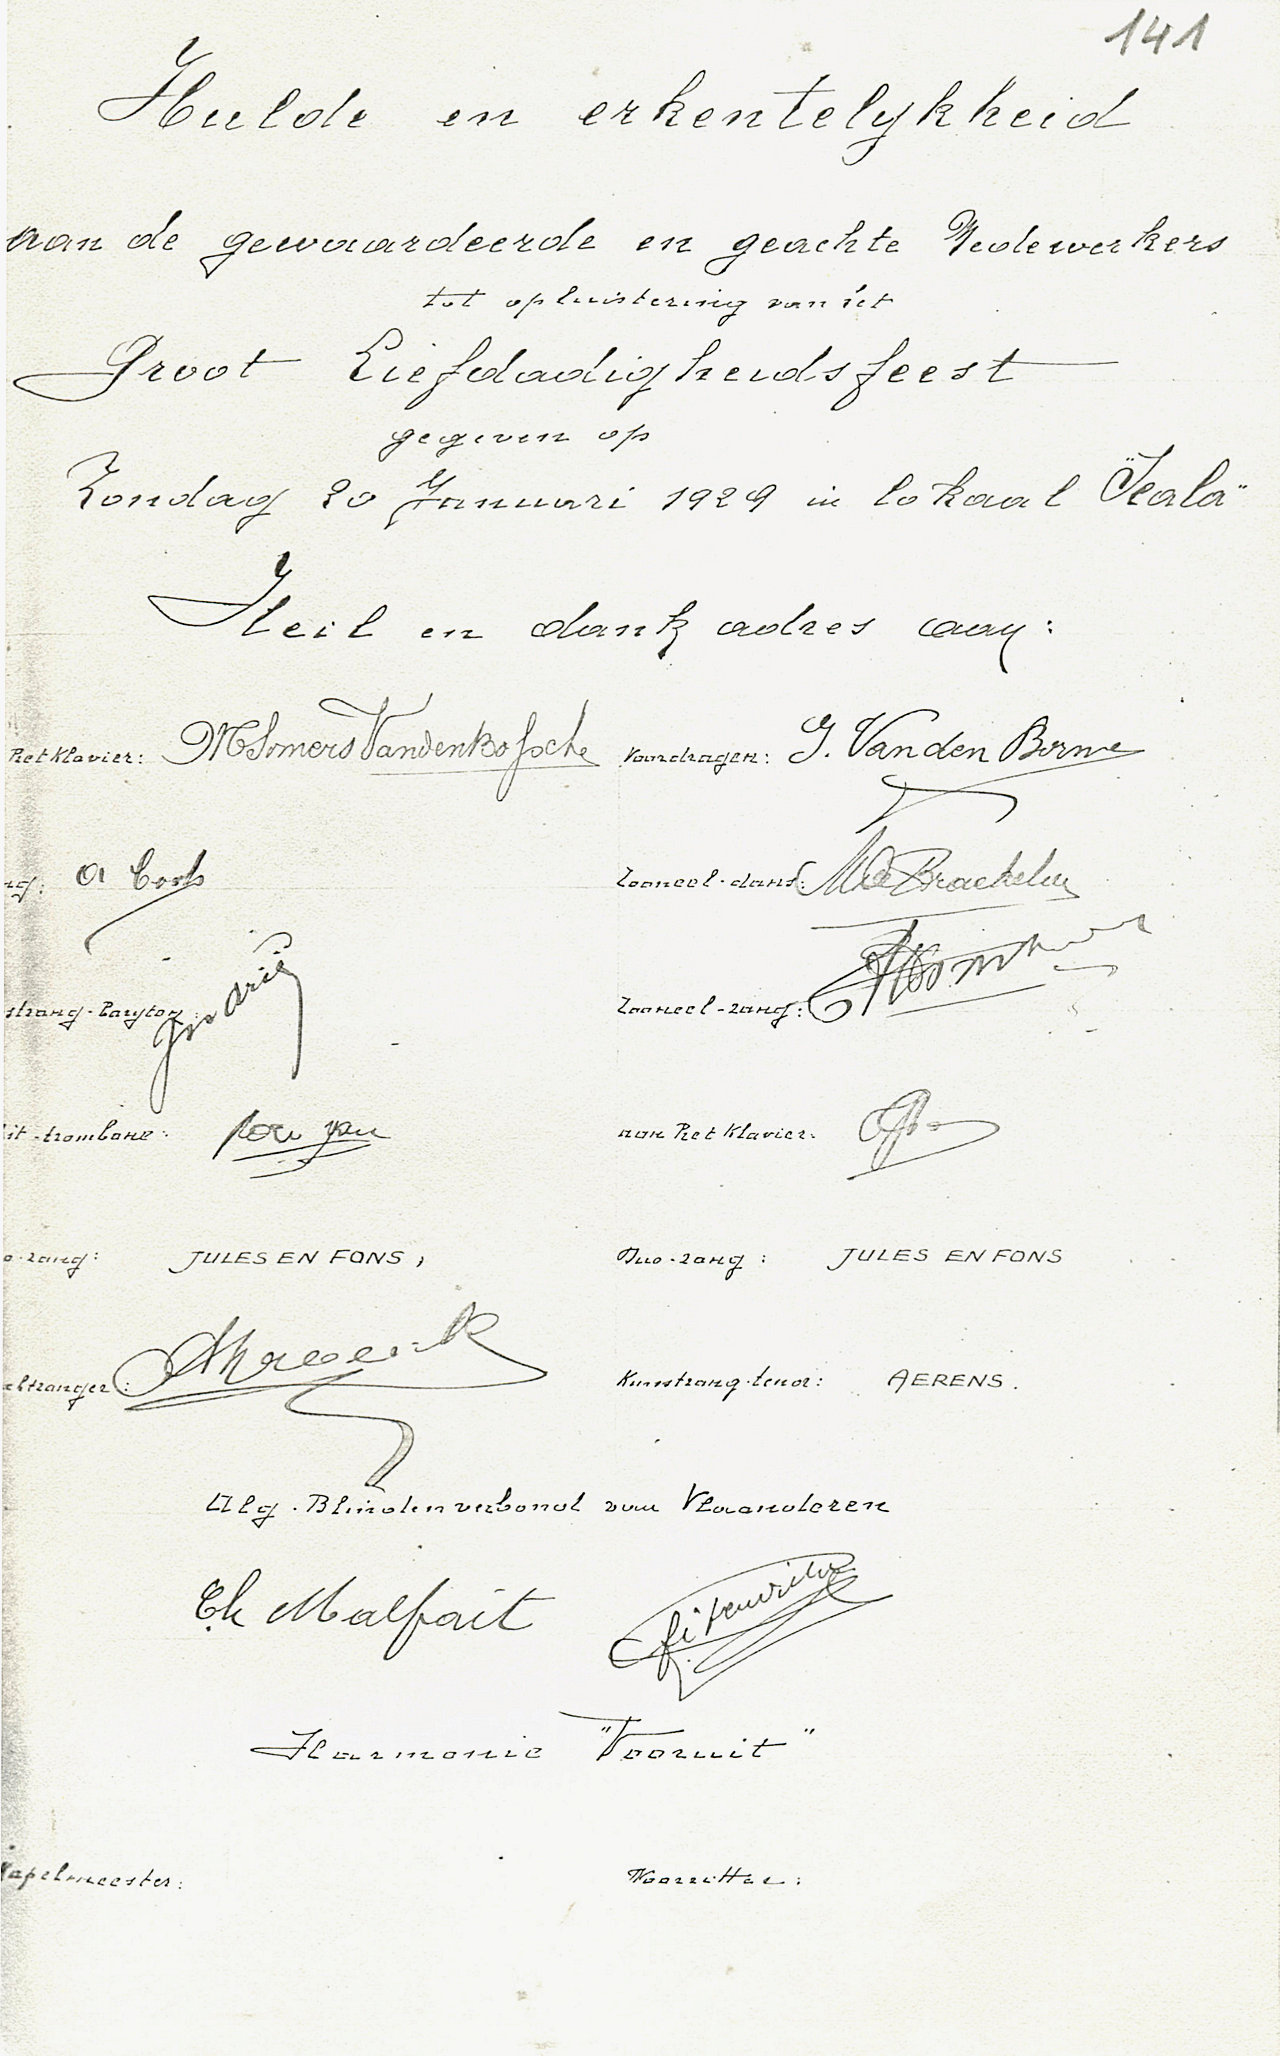 141
Hulde en erkentelykheid
aan de gewaardeerde en geachte Medewerkers
tot opluistering van 't
Groot Liefdadigheidsfeest
gegeven op
Zondag 20 Januari 1929 in lokaal "Scala"
Heil en dank adres aan:
het klavier: M Somers Vandenbossche
Voordragen: J. Van den Borne
ng: A Cools
Tooneel-dans: M De Brackeleer
stzang-baryton: Jos
Tooneel-zang:
it-trombone:
aan het klavier:
o-zang: JULES EN FONS,
Duo-zang: JULES EN FONS
elzanger:
Kunstzang-tenor: AERENS.
Alg. Blindenverbond van Vlaanderen
Ch Malfait
Harmonie "Vooruit"
Kapelmeester:
Voorzitter: